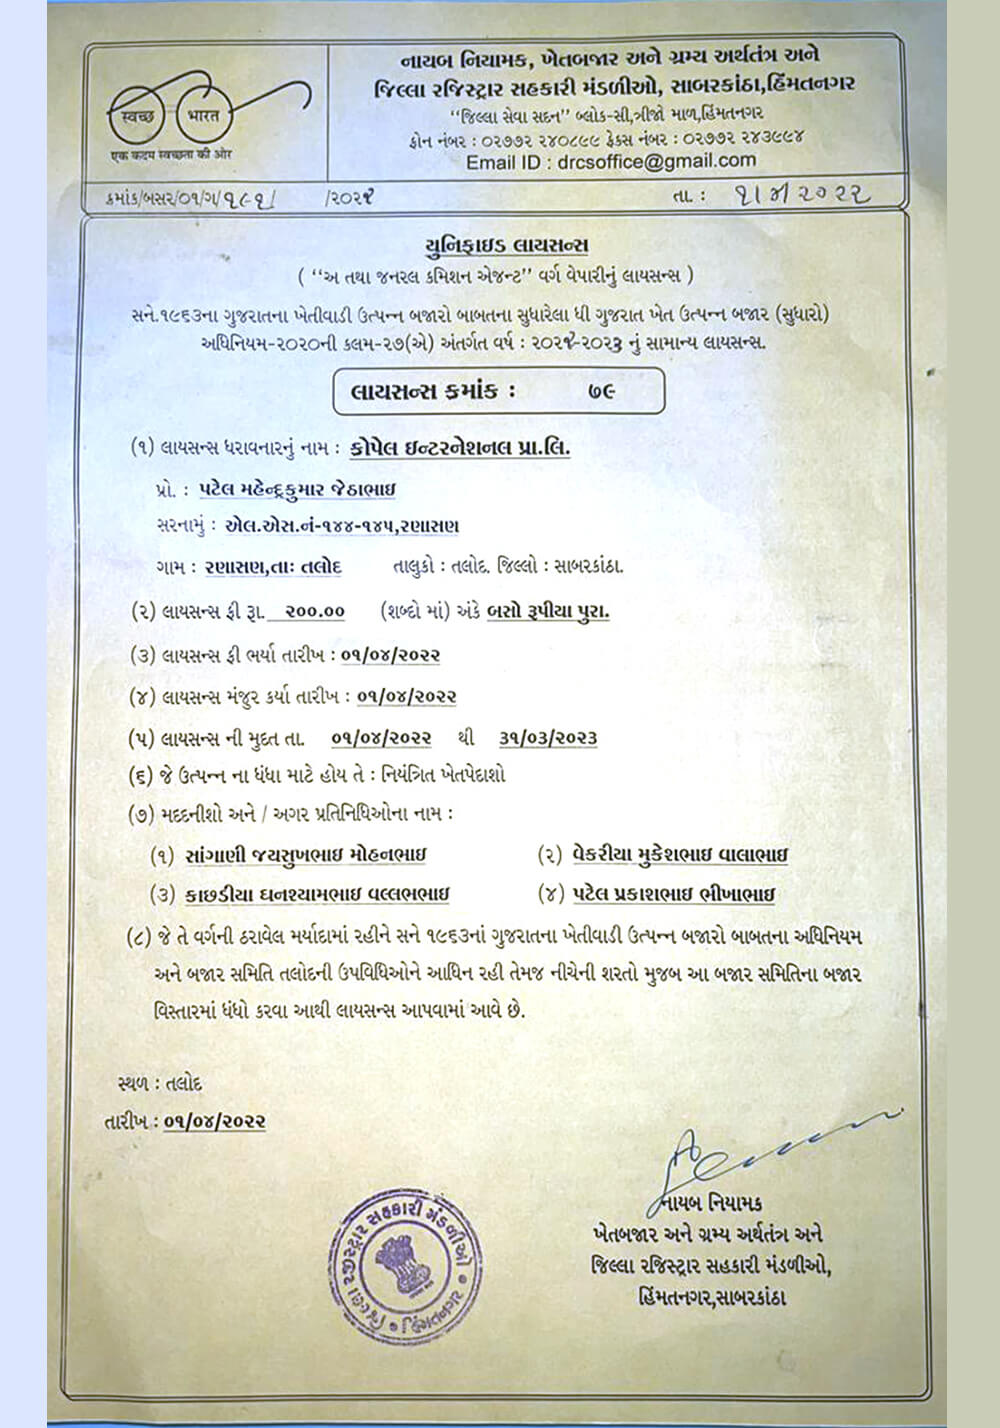 નાયબ નિયામક, ખેતબજાર અને ગ્રમ્ય અર્થતંત્ર અને
જિલ્લા રજિસ્ટ્રાર સહકારી મંડળીઓ, સાબરકાંઠા,હિંમતનગર
"જિલ્લા સેવા સદન" બ્લોક-સી,ત્રીજો માળ,હિંમતનગર
ફોન નંબર : ૦૨૭૭૨ ૨૪૦૮૯૯ ફેક્સ નંબર : ૦૨૭૭૨ ૨૪૩૯૯૪
Email ID : drcsoffice@gmail.com
स्वच्छ भारत
एक कदम स्वच्छता की ओर
ક્રમાંક/બસર/૦૧/ગ/૧૯૧/ /૨૦૨૨ તા. : ૧/૪/૨૦૨૨
યુનિફાઇડ લાયસન્સ
( "અ તથા જનરલ કમિશન એજન્ટ" વર્ગ વેપારીનું લાયસન્સ )
સને.૧૯૬૩ના ગુજરાતના ખેતીવાડી ઉત્પન્ન બજારો બાબતના સુધારેલા ધી ગુજરાત ખેત ઉત્પન્ન બજાર (સુધારો)
અધિનિયમ-૨૦૨૦ની કલમ-૨૭(એ) અંતર્ગત વર્ષ : ૨૦૨૨-૨૦૨૩ નું સામાન્ય લાયસન્સ.
લાયસન્સ ક્રમાંક : ૭૯
(૧) લાયસન્સ ધરાવનારનું નામ : કોપેલ ઇન્ટરનેશનલ પ્રા.લિ.
પ્રો. : પટેલ મહેન્દ્રકુમાર જેઠાભાઇ
સરનામું : એલ.એસ.નં-૧૪૪-૧૪૫,રણાસણ
ગામ : રણાસણ,તાઃ તલોદ તાલુકો : તલોદ. જિલ્લો : સાબરકાંઠા.
(૨) લાયસન્સ ફી રૂા. ૨૦૦.૦૦ (શબ્દો માં) અંકે બસો રૂપીયા પુરા.
(૩) લાયસન્સ ફી ભર્યા તારીખ : ૦૧/૦૪/૨૦૨૨
(૪) લાયસન્સ મંજુર કર્યા તારીખ : ૦૧/૦૪/૨૦૨૨
(૫) લાયસન્સ ની મુદત તા. ૦૧/૦૪/૨૦૨૨ થી ૩૧/૦૩/૨૦૨૩
(૬) જે ઉત્પન્ન ના ધંધા માટે હોય તે : નિયંત્રિત ખેતપેદાશો
(૭) મદદનીશો અને / અગર પ્રતિનિધિઓના નામ :
(૧) સાંગાણી જયસુખભાઇ મોહનભાઇ (૨) વેકરીયા મુકેશભાઇ વાલાભાઇ
(૩) કાછડીયા ઘનશ્યામભાઇ વલ્લભભાઇ (૪) પટેલ પ્રકાશભાઇ ભીખાભાઇ
(૮) જે તે વર્ગની ઠરાવેલ મર્યાદામાં રહીને સને ૧૯૬૩નાં ગુજરાતના ખેતીવાડી ઉત્પન્ન બજારો બાબતના અધિનિયમ
અને બજાર સમિતિ તલોદની ઉપવિધિઓને આધિન રહી તેમજ નીચેની શરતો મુજબ આ બજાર સમિતિના બજાર
વિસ્તારમાં ધંધો કરવા આથી લાયસન્સ આપવામાં આવે છે.
સ્થળ : તલોદ
તારીખ : ૦૧/૦૪/૨૦૨૨
નાયબ નિયામક
ખેતબજાર અને ગ્રમ્ય અર્થતંત્ર અને
જિલ્લા રજિસ્ટ્રાર સહકારી મંડળીઓ,
હિંમતનગર,સાબરકાંઠા
જિલ્લા રજીસ્ટ્રાર સહકારી મંડળીઓ
હિંમતનગર